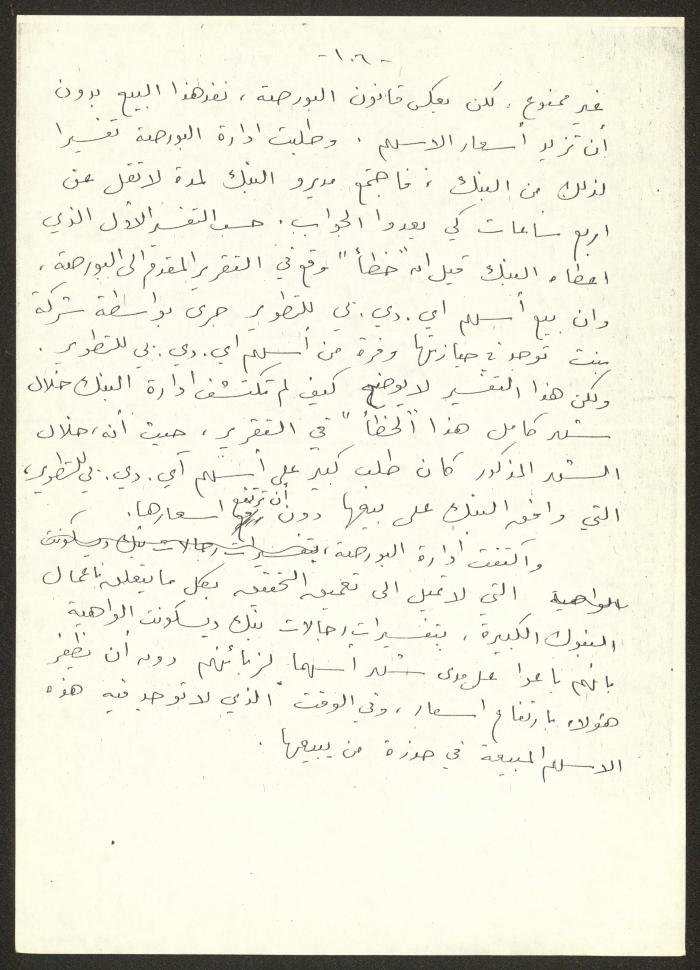 -١٠٦-
غير ممنوع، لكن بعكس قانون البورصة، نفذ هذا البيع بدون
أن تزيد أسعار الاسهم. وطلبت ادارة البورصة تفسيرا
لذلك من البنك، فاجتمع مديرو البنك لمدة لا تقل عن
اربع ساعات كي يعدوا الجواب. حسب التفسير الأول الذي
اعطاه البنك قيل انه "خطأ" وقع في التقرير المقدم الى البورصة،
وان بيع أسهم اي.دي.بي للتطوير جرى بواسطة شركة
بنت توجد في حيازتها وفرة من أسهم اي.دي.بي للتطوير.
ولكن هذا التفسير لا يوضح كيف لم تكتشف ادارة البنك خلال
شهر كامل هذا "الخطأ" في التقرير، حيث أنه، خلال
الشهر المذكور كان طلب كبير على أسهم آي.دي.بي للتطوير،
التي وافق البنك على بيعها دون أن ترتفع اسعارها.
واكتفت ادارة البورصة، بتفسيرات رجالات بنك ديسكونت
الواهية التي لا تميل الى تعميق التحقيق بكل ما يتعلق باعمال
البنوك الكبيرة، بتفسيرات رجالات بنك ديسكونت الواهية
بانهم باعوا على مدى شهر أسهما لزبائنهم دون أن يظفر
هؤلاء بارتفاع اسعار، وفي الوقت الذي لا توجد فيه هذه
الاسهم المبيعة في حوزة من يبيعها.